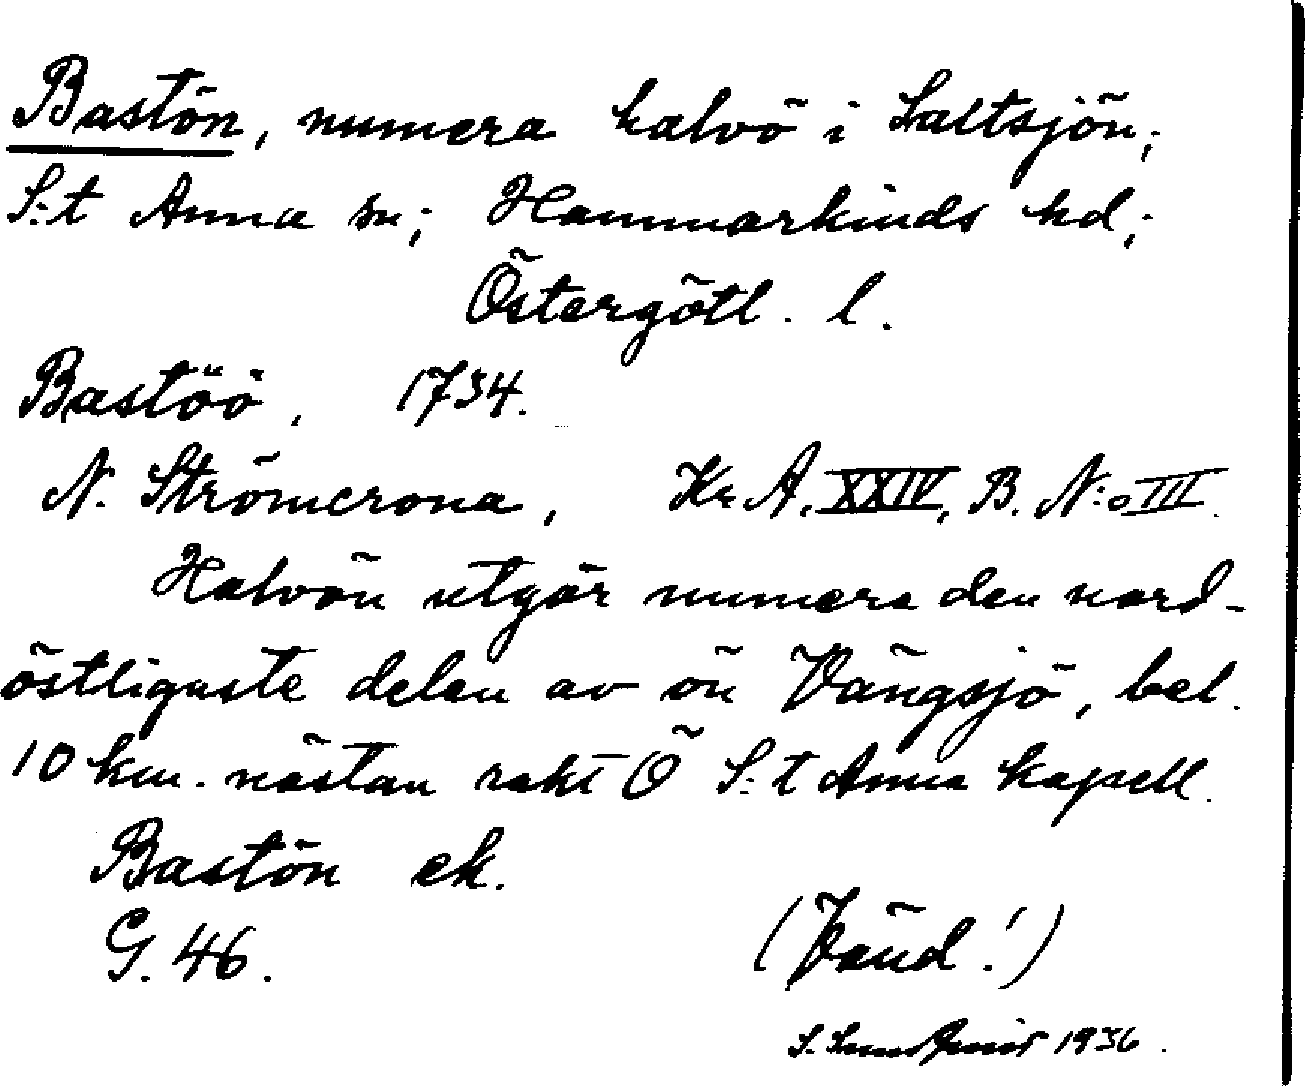 Bastön, numera halvö i Saltsjön;
S:t Anna sn; Hammarkinds hd;
Östergötl. l.
Bastöö, 1734.
N. Strömcrona, Kr. A. XXIV, B. N:o III.
Halvön utgör numera den nord-
östligaste delen av ön Vängsjö, bel.
10 km. nästan rakt Ö S:t Anna kapell.
Bastön ek.
G. 46.
(Vänd!)
S. 1936.